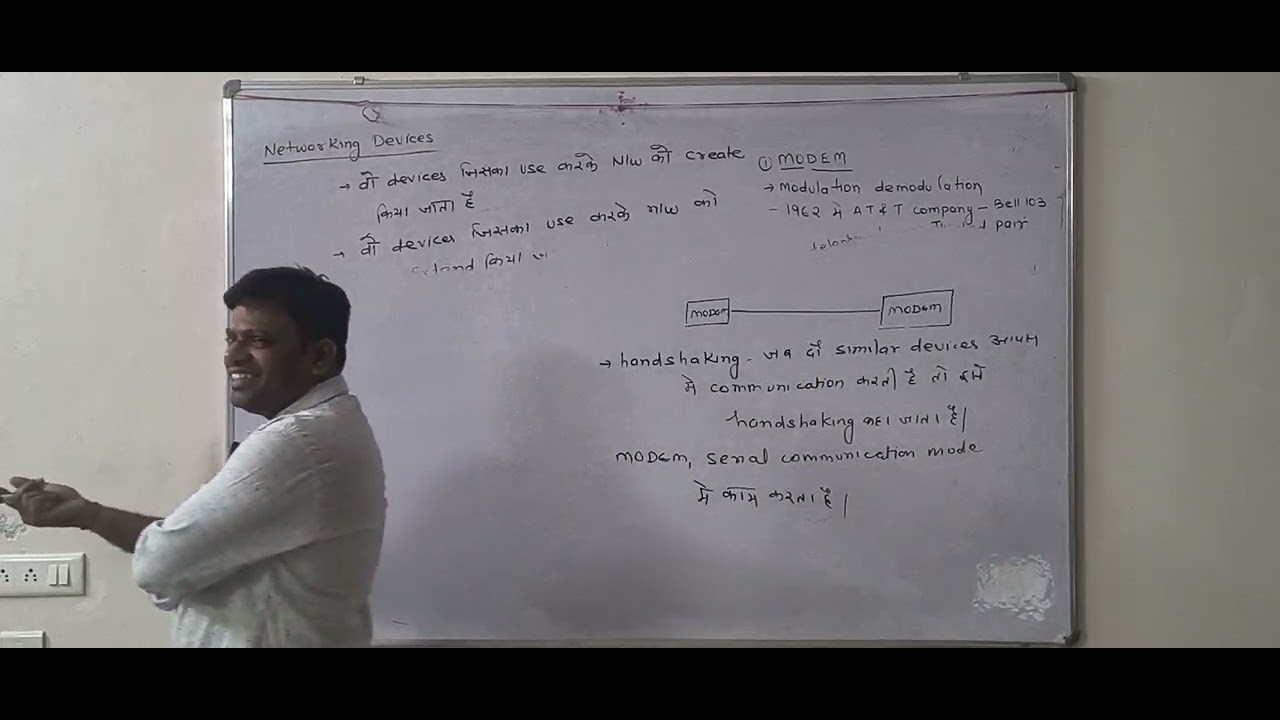 Networking Devices
→ वो devices जिसका use करके N/w को create
किया जाता है
→ वो devices जिसका use करके n/w को
किया
① MODEM
→ Modulation demodulation
- 1962 मे AT & T company - Bell 103
pair
MODEM MODEM
→ handshaking - जब दो similar devices आपस
मे communication करती है तो इसे
handshaking कहा जाता है|
MODEM, serial communication mode
मे काम करता है|